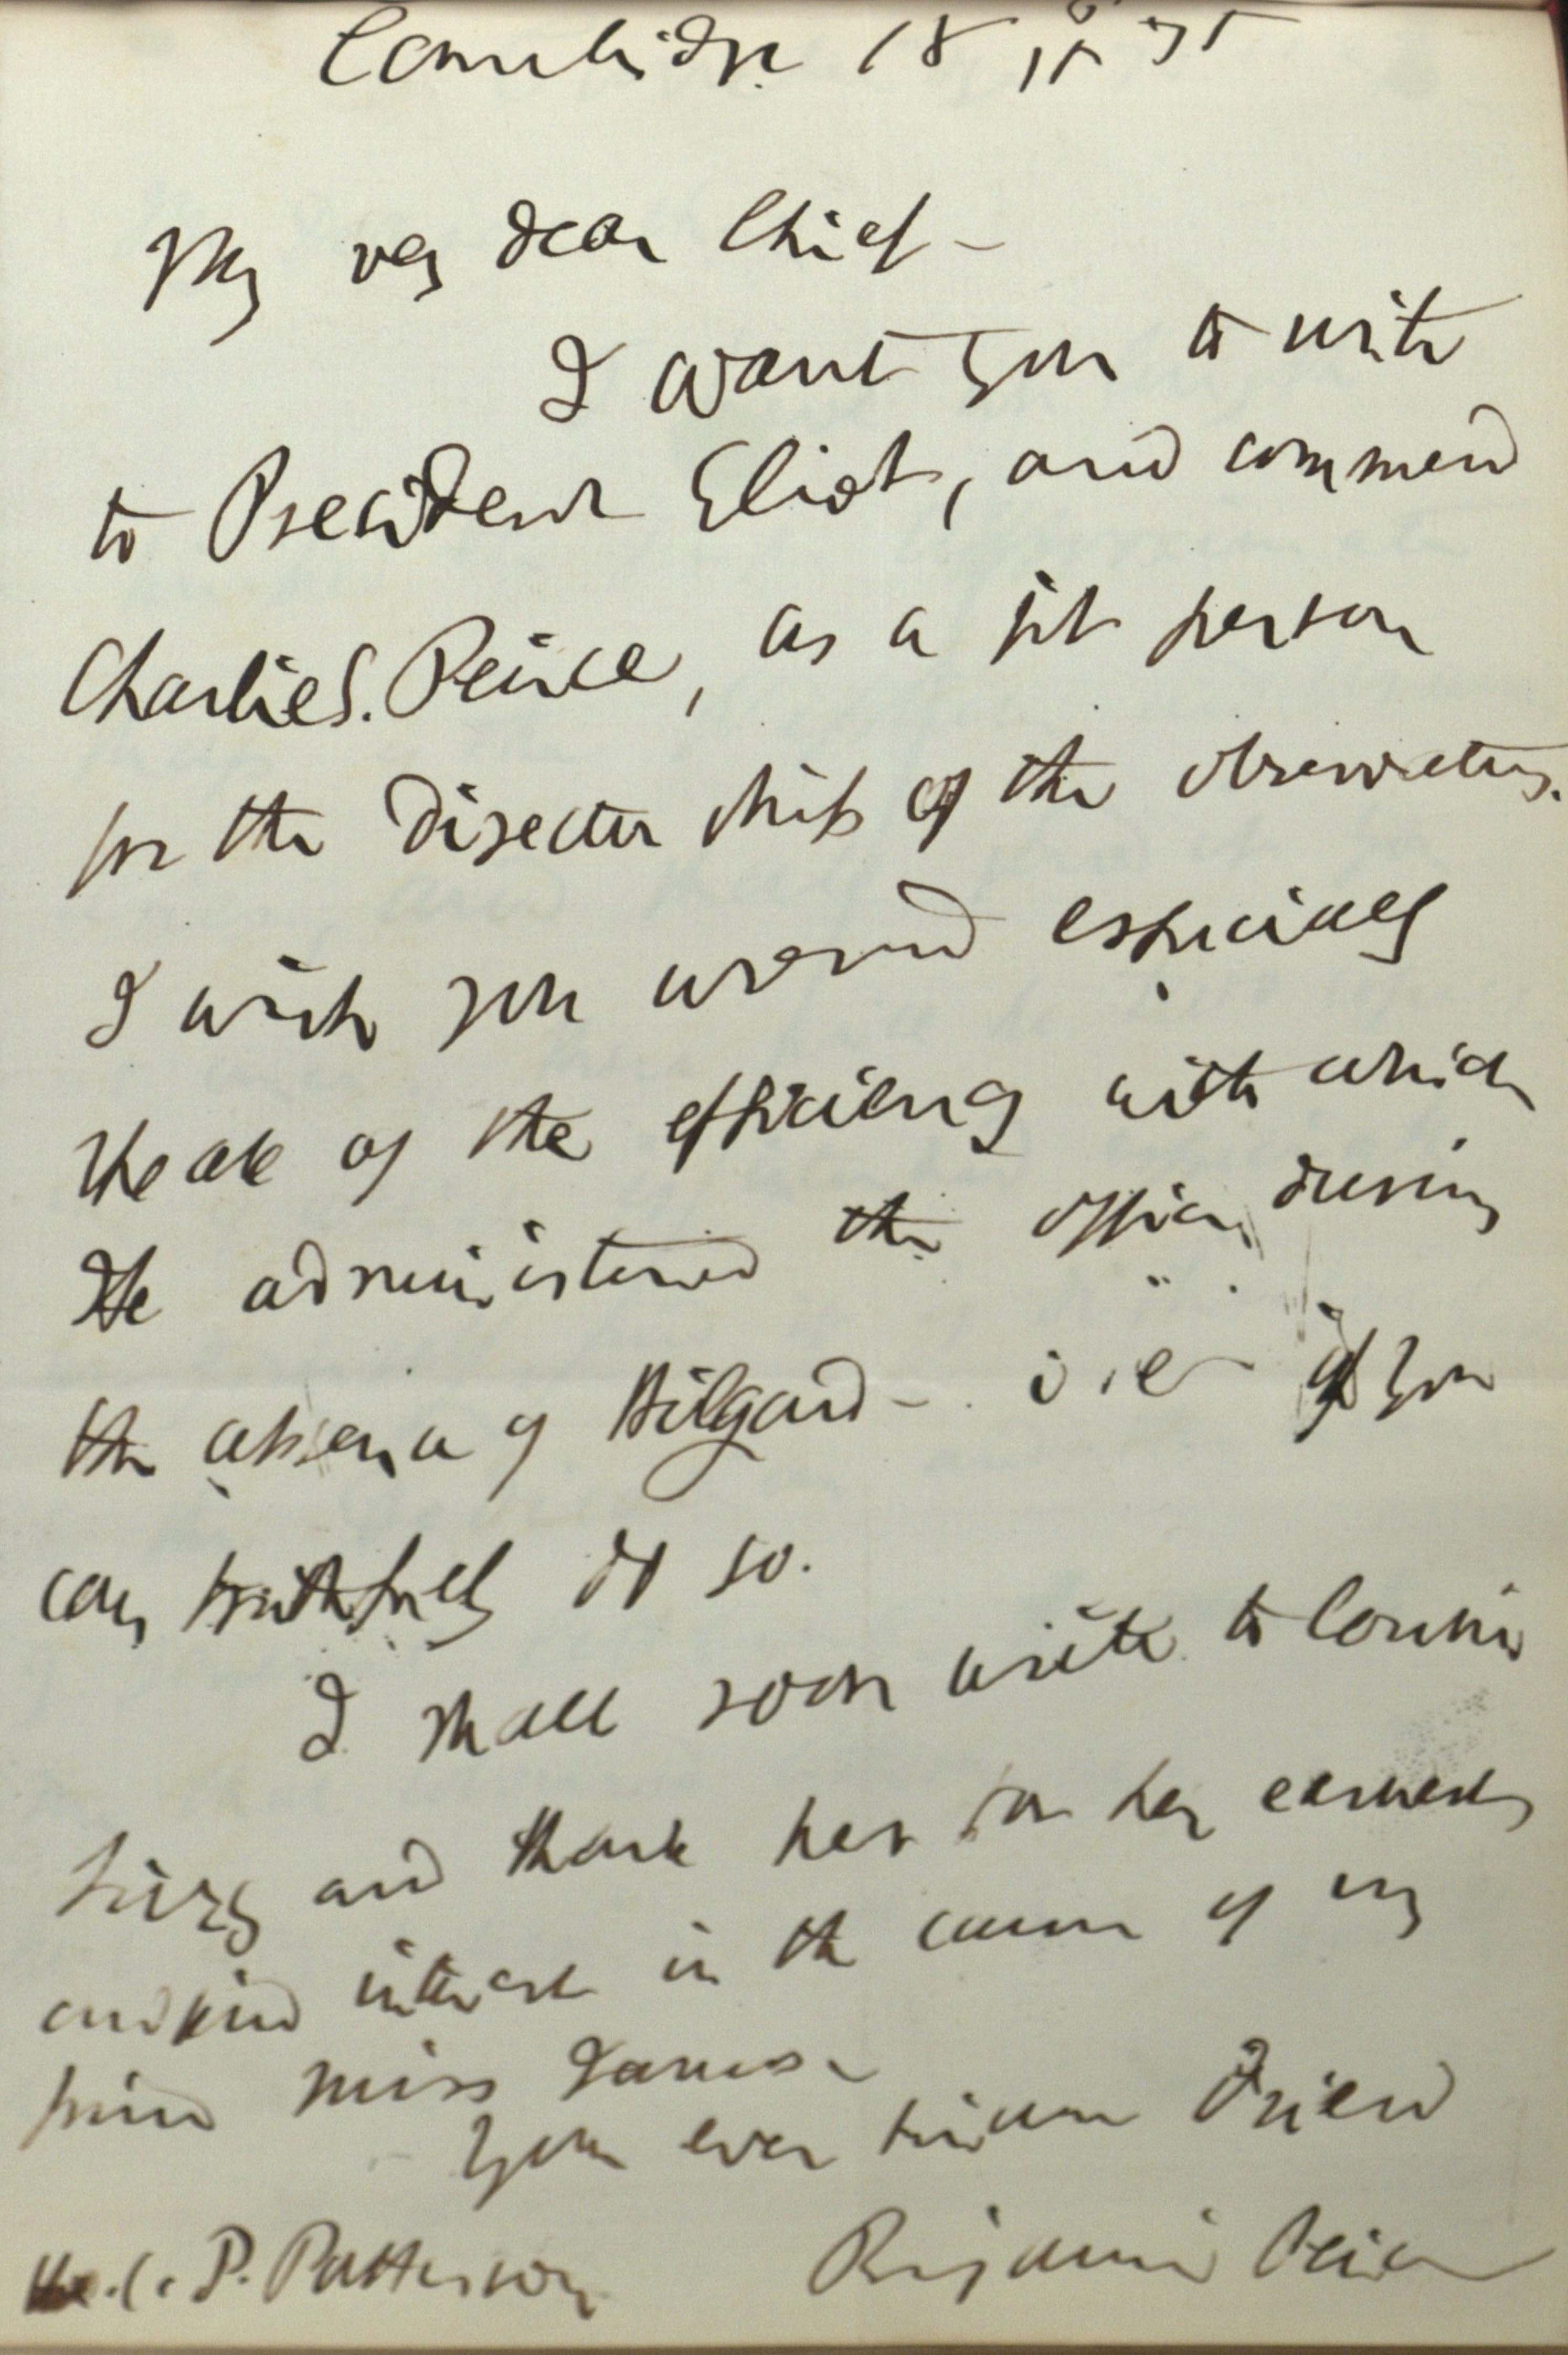 Cambridge 18
My very dear Chief –
I want you to write
to President Eliot, and commend
Charlie S. Peirce, as a fit person
for the directorship of the observatory.
I wish you would especially
speak of the efficiency with which
He administered the office during
the absence of Hilgard – i.e. if you
can truthfully do so.
I shall soon write to Cousin
Lizzy and thank her for her earnest
and kind interest in the cause of my
friend Miss
Your ever friend
C. P. Patterson Benjamin Peirce